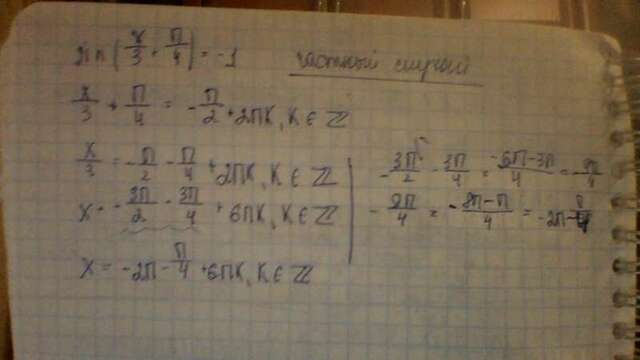 sin(x/3 + π/4) = -1 частный случай
x/3 + π/4 = -π/2 + 2πK, K ∈ ℤ
x/3 = -π/2 - π/4 + 2πK, K ∈ ℤ
x = -3π/2 - 3π/4 + 6πK, K ∈ ℤ
x = -2π - π/4 + 6πK, K ∈ ℤ
-3π/2 - 3π/4 = (-6π-3π)/4 = -9π/4
-9π/4 = -(8π-π)/4 = -2π-π/4